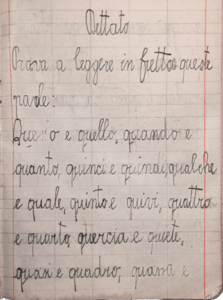 Dettato
Prova a leggere in fretta queste
parole:
Que o e quello, quando e
quanto, quinci e quindi, qualche
e quale, quinto e quivi, quattro
e quarto, quercia e quiete,
quasi e quadro, quana e